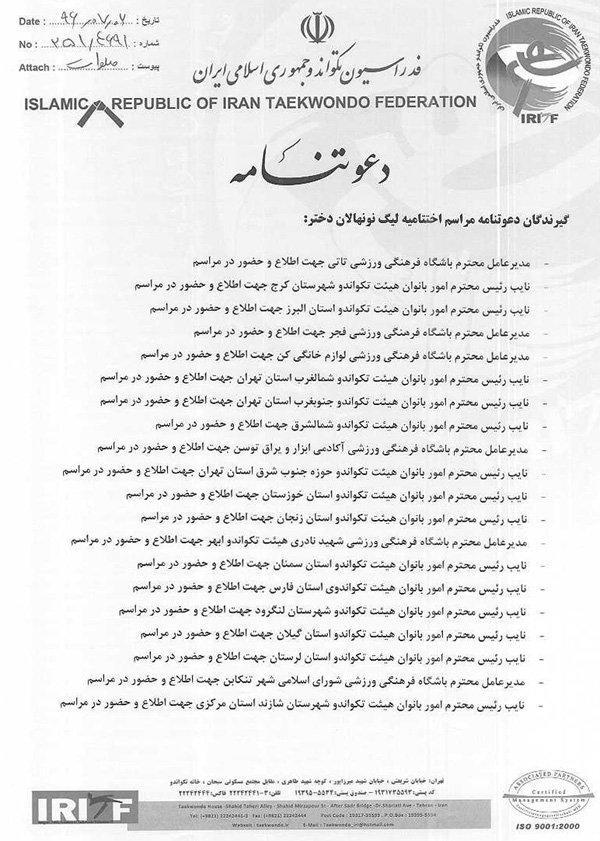 Date : ۹۶،۰۷،۰۲ : تاریخ
No : ۲۵۱/۶۹۹۱ : شماره
Attach : : پیوست
فدراسیون تکواندو جمهوری اسلامی ایران
ISLAMIC REPUBLIC OF IRAN TAEKWONDO FEDERATION
ISLAMIC REPUBLIC OF IRAN TAEKWONDO FEDERATION
IRITF
دعوتنامه
گیرندگان دعوتنامه مراسم اختتامیه لیگ نونهالان دختر:
- مدیرعامل محترم باشگاه فرهنگی ورزشی تاتی جهت اطلاع و حضور در مراسم
- نایب رئیس محترم امور بانوان هیئت تکواندو شهرستان کرج جهت اطلاع و حضور در مراسم
- نایب رئیس محترم امور بانوان هیئت تکواندو استان البرز جهت اطلاع و حضور در مراسم
- مدیرعامل محترم باشگاه فرهنگی ورزشی فجر جهت اطلاع و حضور در مراسم
- مدیرعامل محترم باشگاه فرهنگی ورزشی لوازم خانگی کن جهت اطلاع و حضور در مراسم
- نایب رئیس محترم امور بانوان هیئت تکواندو شمالغرب استان تهران جهت اطلاع و حضور در مراسم
- نایب رئیس محترم امور بانوان هیئت تکواندو جنوبغرب استان تهران جهت اطلاع و حضور در مراسم
- نایب رئیس محترم امور بانوان هیئت تکواندو شمالشرق جهت اطلاع و حضور در مراسم
- مدیرعامل محترم باشگاه فرهنگی ورزشی آکادمی ابزار و یراق توسن جهت اطلاع و حضور در مراسم
- نایب رئیس محترم امور بانوان هیئت تکواندو حوزه جنوب شرق استان تهران جهت اطلاع و حضور در مراسم
- نایب رئیس محترم امور بانوان هیئت تکواندو استان خوزستان جهت اطلاع و حضور در مراسم
- نایب رئیس محترم امور بانوان هیئت تکواندو استان زنجان جهت اطلاع و حضور در مراسم
- مدیرعامل محترم باشگاه فرهنگی ورزشی شهید نادری هیئت تکواندو ابهر جهت اطلاع و حضور در مراسم
- نایب رئیس محترم امور بانوان هیئت تکواندو استان سمنان جهت اطلاع و حضور در مراسم
- نایب رئیس محترم امور بانوان هیئت تکواندوی استان فارس جهت اطلاع و حضور در مراسم
- نایب رئیس محترم امور بانوان هیئت تکواندو شهرستان لنگرود جهت اطلاع و حضور در مراسم
- نایب رئیس محترم امور بانوان هیئت تکواندو استان گیلان جهت اطلاع و حضور در مراسم
- نایب رئیس محترم امور بانوان هیئت تکواندو استان لرستان جهت اطلاع و حضور در مراسم
- مدیرعامل محترم باشگاه فرهنگی ورزشی شورای اسلامی شهر تنکابن جهت اطلاع و حضور در مراسم
- نایب رئیس محترم امور بانوان هیئت تکواندو شهرستان شازند استان مرکزی جهت اطلاع و حضور در مراسم
تهران: خیابان شریعتی ، خیابان شهید میرزاپور ، کوچه شهید طاهری ، مقابل مجتمع مسکونی سبحان ، خانه تکواندو
کد پستی: ۱۹۳۱۷۳۵۵۹۳ - صندوق پستی: ۵۵۳۴-۱۹۳۹۵ تلفن: ۳-۲۲۲۴۲۴۴۱ فاکس: ۲۲۲۴۲۴۴۴
Taekwondo House -Shahid Taheri Alley - Shahid Mirzapour St - After Sadr Bridge -Dr.Shariati Ave - Tehran - Iran
Tel: (+9821) 22242441-3 Fax: (+9821) 22242444 Post Code : 19317-35593 , P.O.Box : 19395-5534
Website : Taekwondo.ir E-Mail : Taekwondo_iri@hotmail.com
IRITF
ASSOCIATED PARTNERS
Certified
Management System
ISO 9001:2000